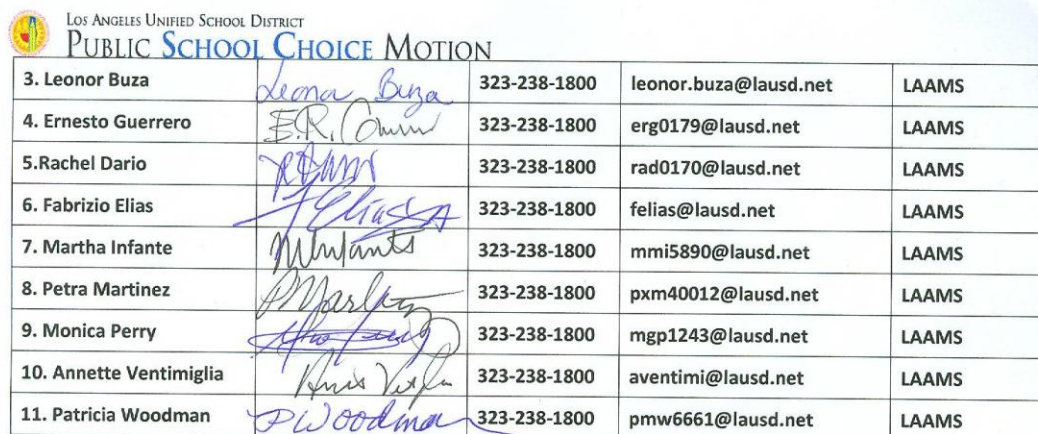 LOS ANGELES UNIFIED SCHOOL DISTRICT
PUBLIC SCHOOL CHOICE MOTION
3. Leonor Buza Leonor Buza 323-238-1800 leonor.buza@lausd.net LAAMS
4. Ernesto Guerrero E.R. 323-238-1800 erg0179@lausd.net LAAMS
5.Rachel Dario 323-238-1800 rad0170@lausd.net LAAMS
6. Fabrizio Elias F Elias 323-238-1800 felias@lausd.net LAAMS
7. Martha Infante MInfante 323-238-1800 mmi5890@lausd.net LAAMS
8. Petra Martinez 323-238-1800 pxm40012@lausd.net LAAMS
9. Monica Perry 323-238-1800 mgp1243@lausd.net LAAMS
10. Annette Ventimiglia 323-238-1800 aventimi@lausd.net LAAMS
11. Patricia Woodman P Woodman 323-238-1800 pmw6661@lausd.net LAAMS